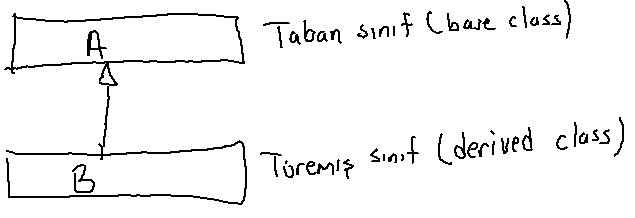 A
Taban sınıf (base class)
B
Türemiş sınıf (derived class)